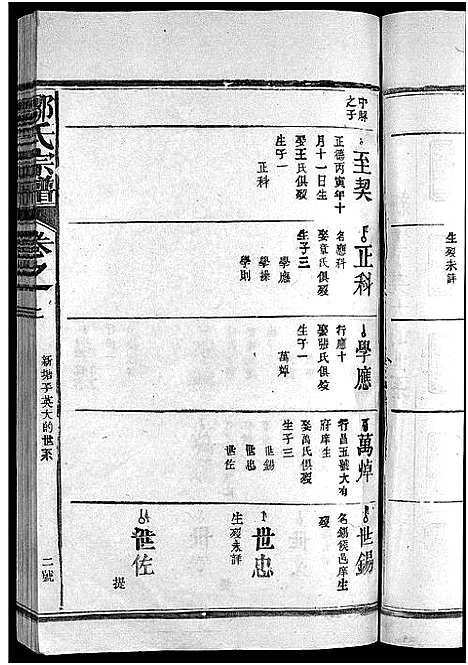 生歿未詳
中解
之子
至契
正德丙寅年十
月十一日生
娶王氏俱歿
生子一
正科
正科
名應科
娶童氏俱歿
生子三
學應
學操
學則
學應
行應十
娶張氏俱歿
生子一
萬焯
萬焯
行昌五號大有
府庠生
娶萬氏俱歿
生子三
世錫
世忠
世佐
世錫
名錫侯邑庠生
歿
世忠
生歿未詳
世佐
提
鄒氏宗譜
卷之一
新塘子英大的世系
二號